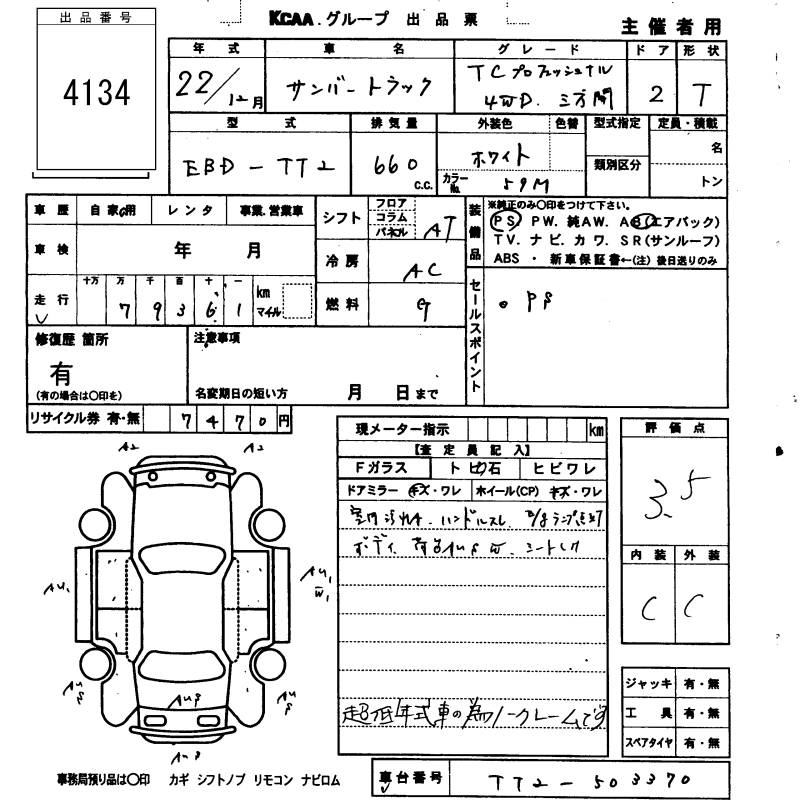 KCAA.グループ 出品票
主催者用
出品番号
4134
年式 車名 グレード ドア 形状
22/12月 サンバートラック TCプロフェッショナル 4WD. 三方開 2 T
型式 排気量 外装色 色替 型式指定 定員・積載
EBD-TT2 660 c.c. ホワイト 類別区分 名
カラーNo. 59M トン
車歴 自家用 レンタ 事業.営業車
車検 年 月
走行 十万 万 千 百 十 一
7 9 3 6 1 km マイル
シフト フロア コラム パネル AT
冷房 AC
燃料 G
装備品
※純正のみ○印をつけて下さい。
PS PW. 純AW. AB(エアバック)
TV. ナビ. カワ. SR(サンルーフ)
ABS ・ 新車保証書←(注)後日送りのみ
セールスポイント
。PS
修復歴 箇所
有
(有の場合は○印を)
注意事項
名変期日の短い方 月 日 まで
リサイクル券 有・無 7470円
現メーター指示 km
【査定員記入】
Fガラス トビ石 ヒビワレ
ドアミラー キズ・ワレ ホイール(CP) キズ・ワレ
室内汚れ. ハンドルスレ.
ボディ
超低年式車の為ノークレームです
評価点
3.5
内装 外装
C C
ジャッキ 有・無
工具 有・無
スペアタイヤ 有・無
A2 A2
AU1 AU1
W1
事務局預り品は○印 カギ シフトノブ リモコン ナビロム
車台番号 TT2-503370